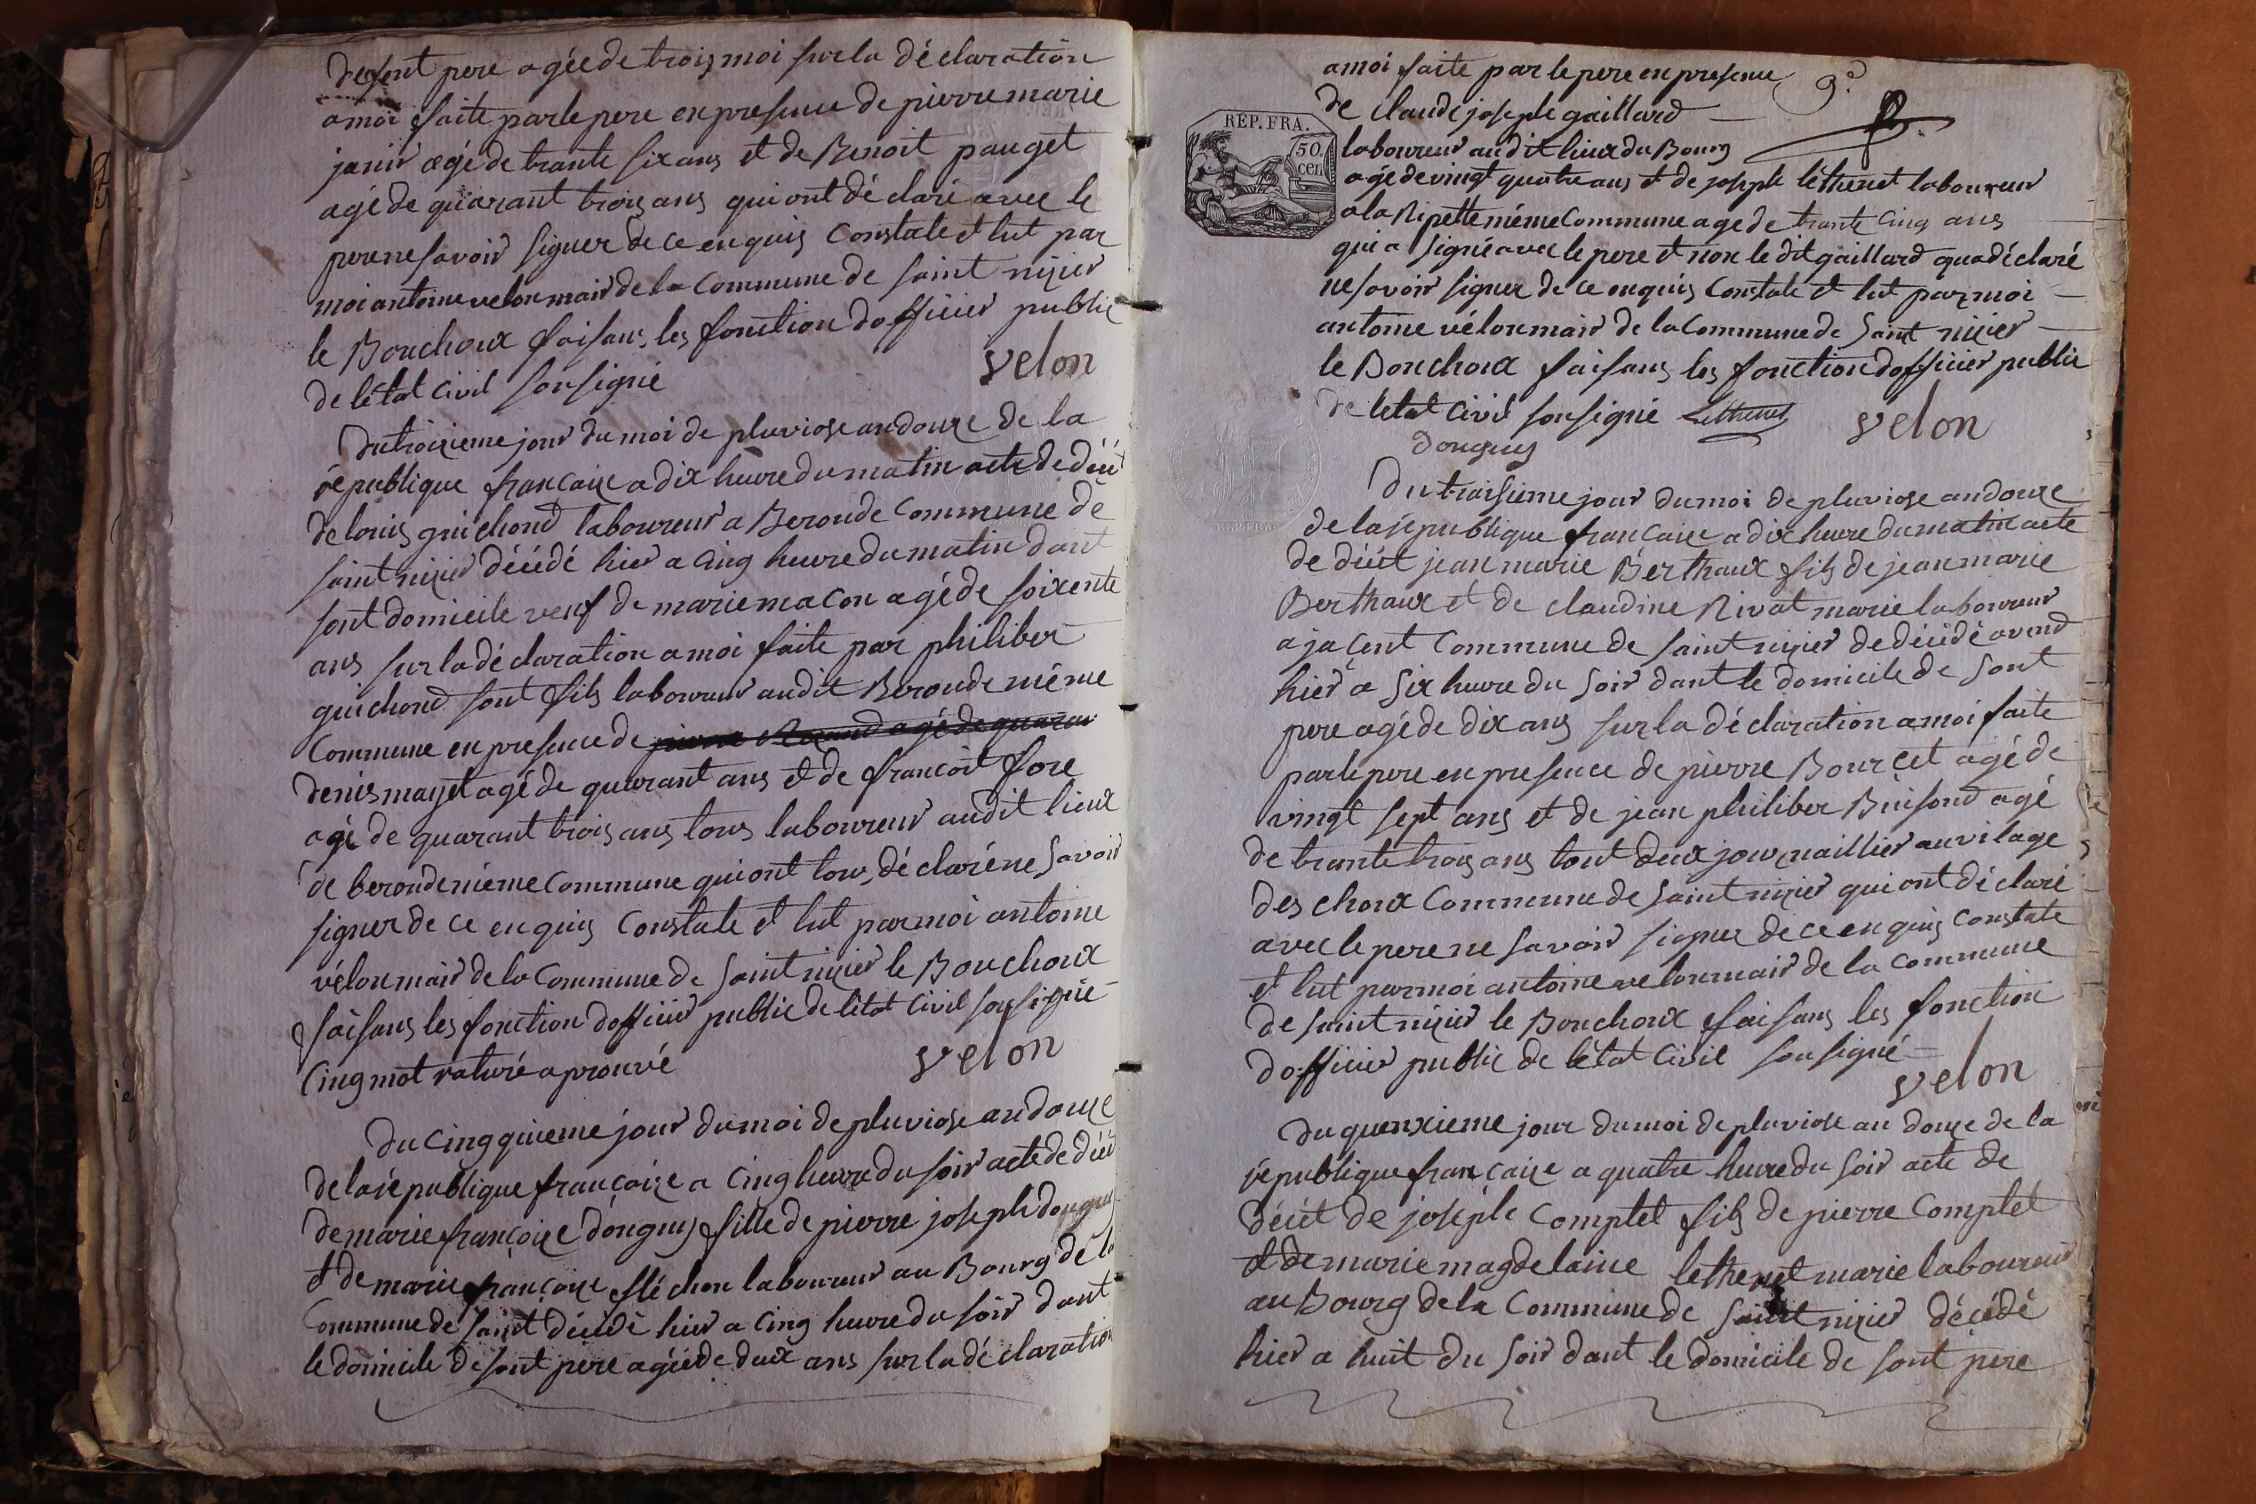 de sont pere agée de trois moi sur la déclaration
amoi faite par le pere en presence de pierre marie
janin agé de trante six ans et de Benoit pauget
agé de quarant trois ans qui ont déclaré avec le
pere ne savoir signer de ce enquis Constate et lut par
moi antoine velon mair de la Commune de saint nizier
le Bouchoux faisans les fonction dofficier public
de létat civil sousigné velon
Du troizieme jour du moi de pluviose an douze de la
république françaize a dix heure du matin acte de déét
de louis guichond laboureur a Beronde Commune de
saint nizier décédé hier a cinq heure du matin dant
sont domicile veuf de marie macon agé de soixente
ans sur la déclaration a moi faite par philiber
guichond sont fils laboureur audit Beronde même
Commune en presence de
denis mayet agé de quarant ans et de françoit fore
agé de quarant trois ans tous laboureur audit lieux
de beronde même Commune qui ont tous déclaré ne savoir
signer de ce enquis Constate et lut par moi antoine
vélon mair de la Commune de saint nizier le Bouchoux
faisans les fonction dofficier public de létat civil sousigné
Cinq mot raturé aprouvé velon
Du cinqquieme jour du moi de pluviose an douze
de la république françaize a cinq heure du soir acte de déét
de marie françoize donguy fille de pierre joseph donguy
et de marie françoize fléchon laboureur au Bourg de la
Commune de saint décédé hier a cinq heure du soir dant
le domicile de sont pere agée de deux ans sur la déclaration
9e
amoi faite par le pere en presence
de claude joseph gaillard
REP. FRA.
50 cen
laboureur audit lieux du Bourg
agé de vingt quatre ans et de joseph léthenet laboureur
a la Ripette même Commune age de trante cinq ans
qui a signé avec le pere et non le dit gaillard qua déclaré
ne savoir signer de ce enquis Constate et lut par moi
antoine vélon mair de la Commune de saint nizier
le Bouchoux faisans les fonction dofficier public
de létat civil sousigné Lethenet velon
donguy
Du troisieme jour du moi de pluviose an douze
de la république françaize a dix heure du matin acte
de déét jean marie Berthaux fils de jean marie
Berthaux et de claudine Rivat marie laboureur
a jacent Commune de saint nizier de décédé avend
hier a six heure du soir dant le domicile de sont
pere agé de dix ans sur la déclaration amoi faite
par le pere en presence de pierre Bourcet agé de
vingt sept ans et de jean philiber Buisond agé
de trante trois ans tout deux journaillier au vilage
des choux Commune de saint nizier qui ont déclaré
avec le pere ne savoir signer de ce enquis constate
et lut par moi antoine velon mair de la commune
de saint nizier le Bouchoux faisans les fonction
dofficier public de létat civil sousigné
velon
Du quenxieme jour du moi de pluviose an douze de la
république françaize a quatre heure du soir acte de
déét de joseph Complet fils de pierre Complet
et de marie magdelaine lethenet marie laboureur
au Bourg de la Commune de saint nizier décédé
hier a huit du soir dant le domicile de sont pere